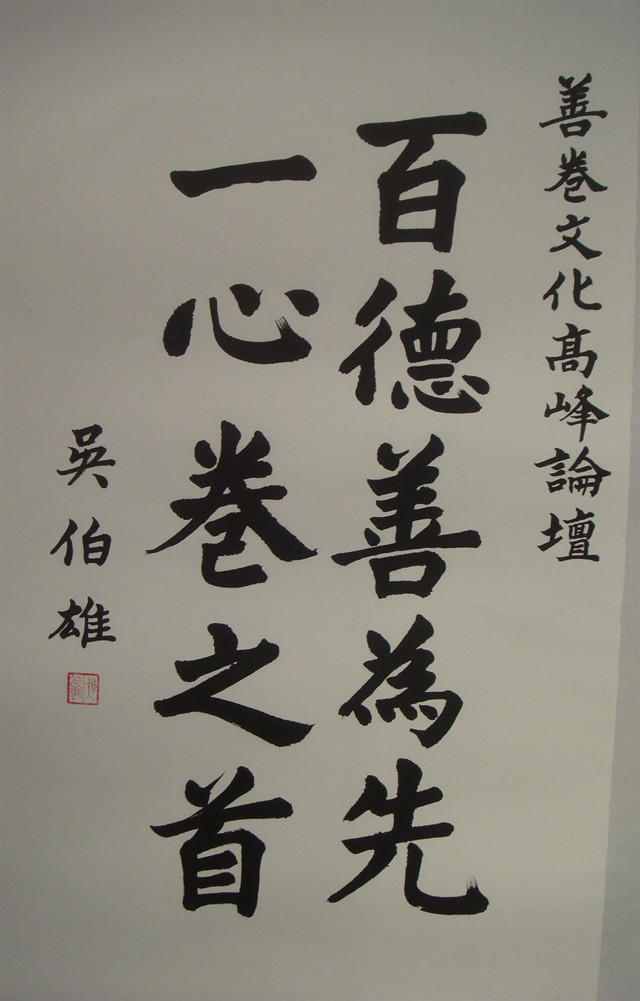 善卷文化高峰論壇
百德善為先
一心卷之首
吳伯雄